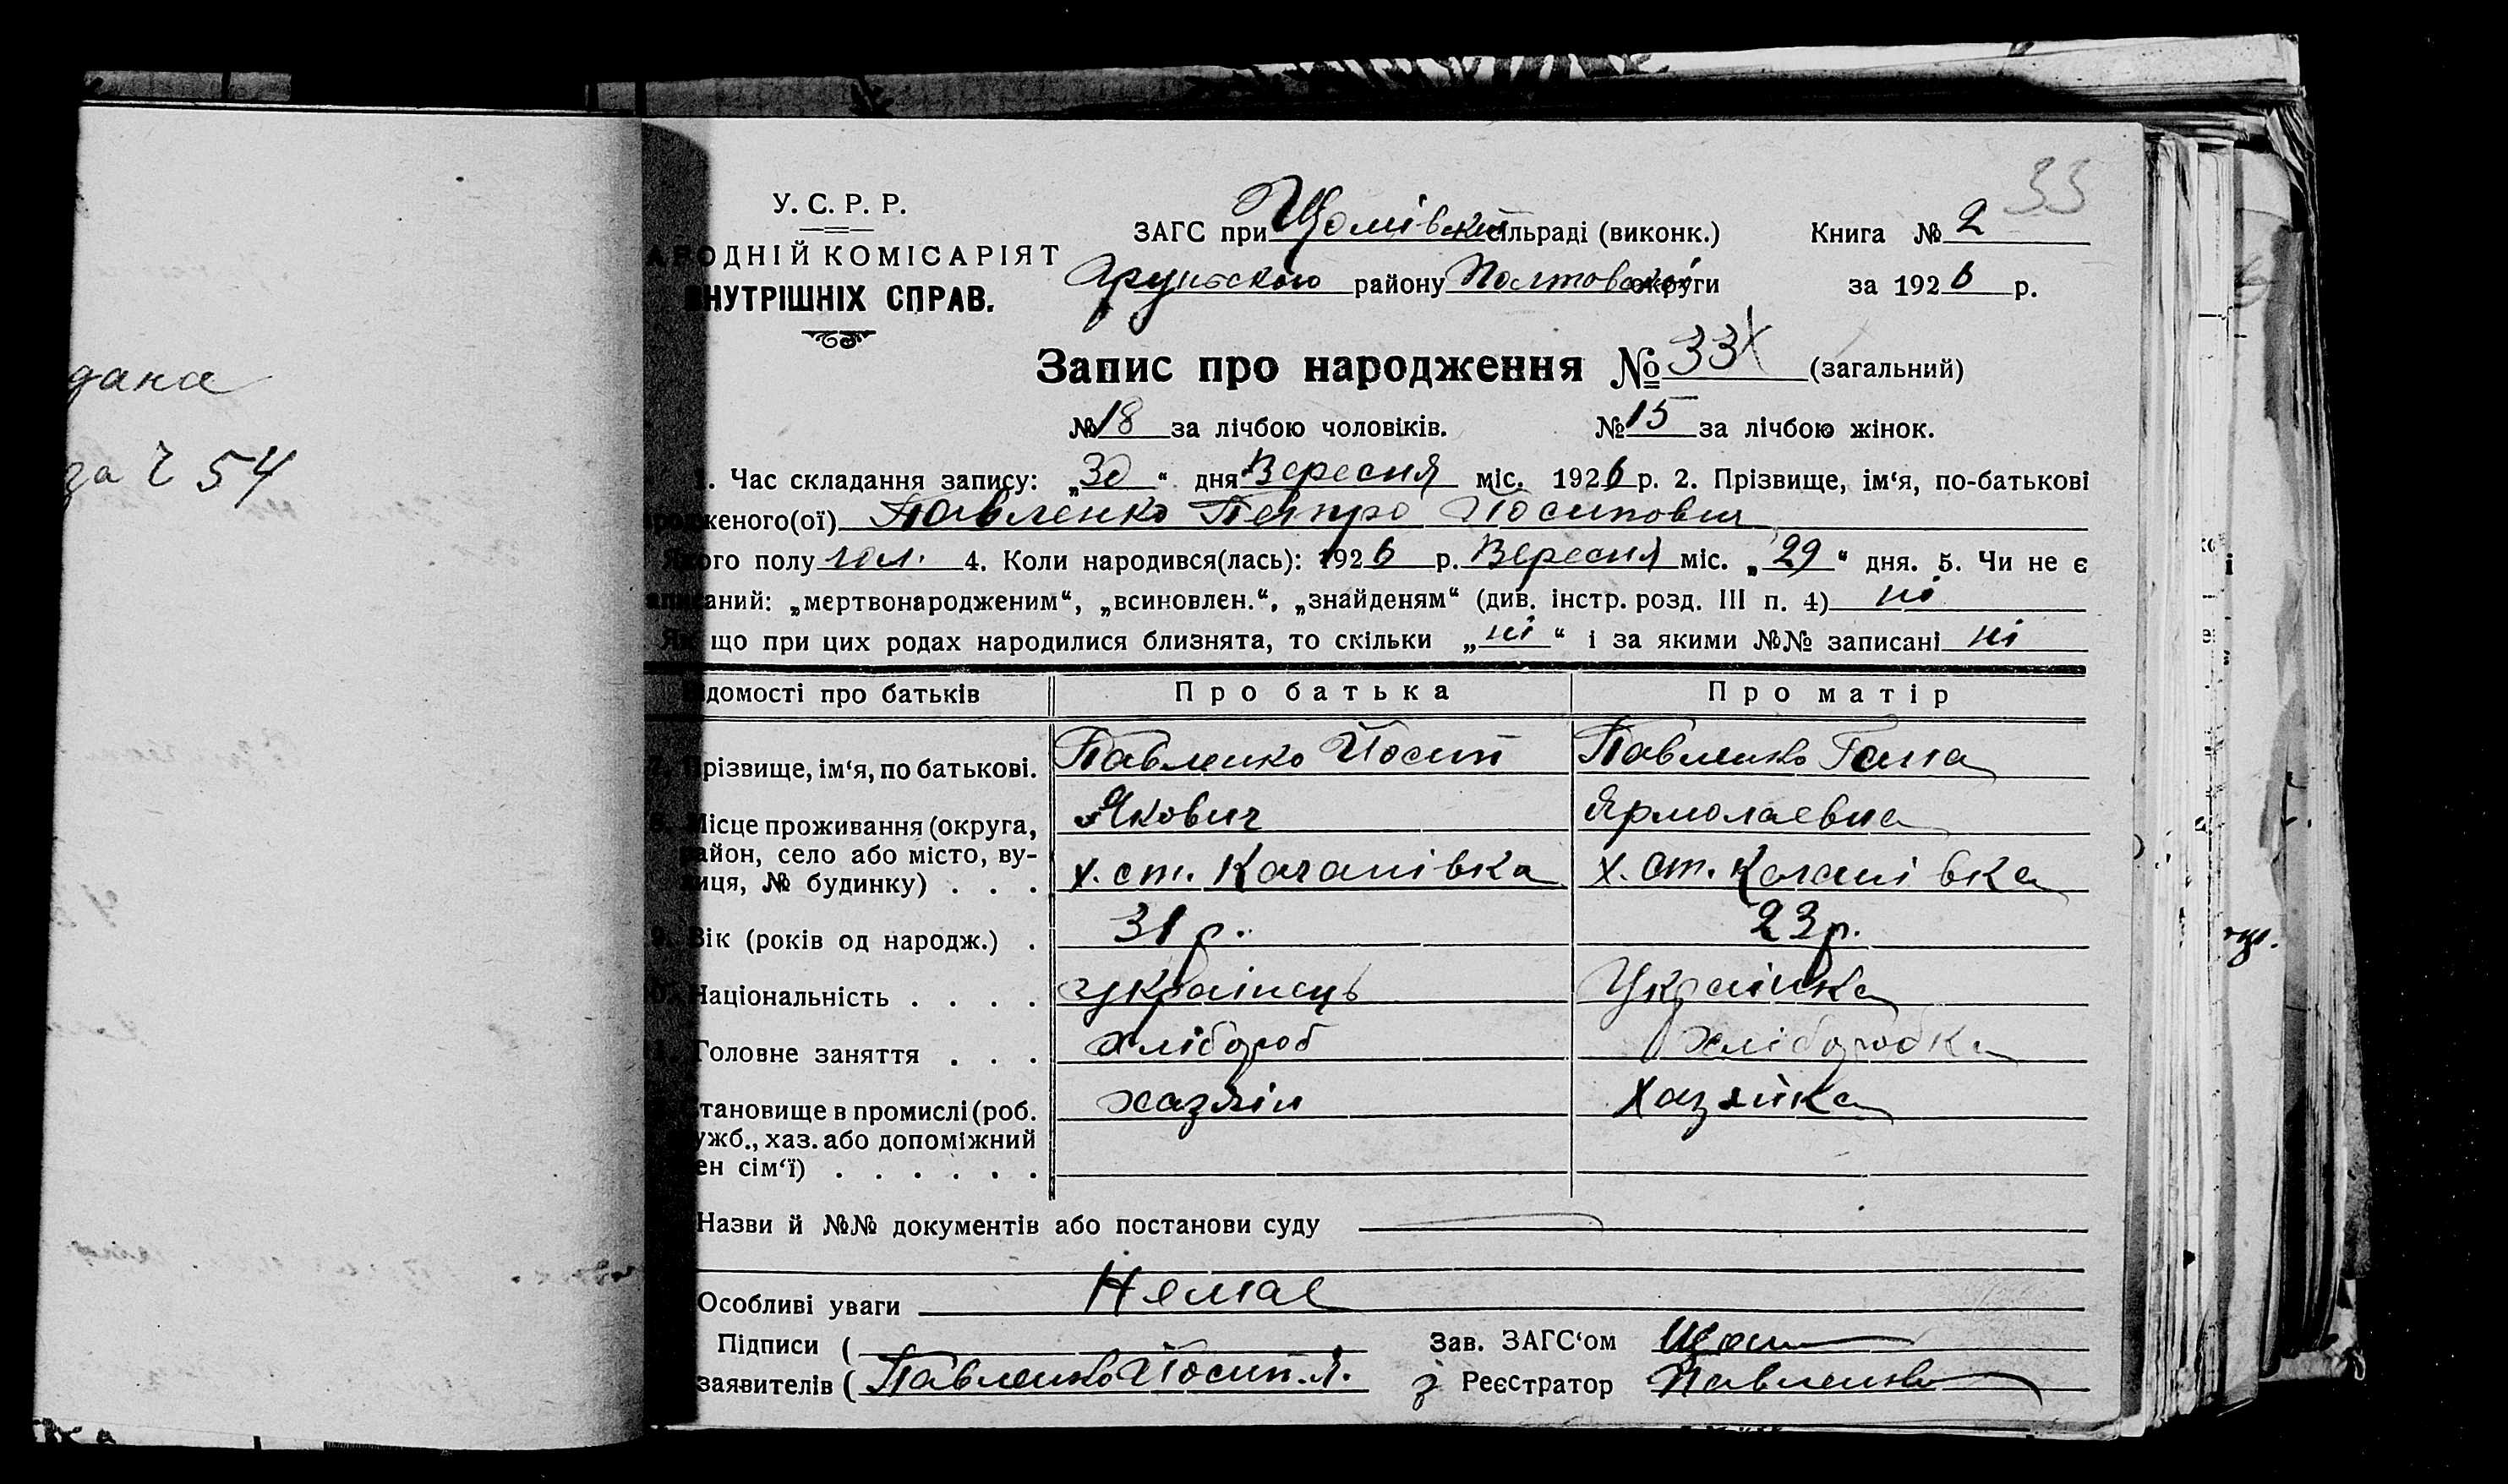 33
У. С. Р. Р.
АРОДНІЙ КОМІСАРІЯТ
ВНУТРІШНІХ СПРАВ.
ЗАГС при сільраді (виконк.)
району Полтавської округи
Книга № 2
за 1926 р.
дана
за ч 54
Запис про народження № 33 (загальний)
№ 18 за лічбою чоловіків. № 15 за лічбою жінок.
1. Час складання запису: „30“ дня Вересня міс. 1926 р. 2. Прізвище, ім‘я, по-батькові
родженого(ої) Павленко Петро Йосипович
Якого полу чол. 4. Коли народився(лась): 1926 р. Вересня міс. „29“ дня. 5. Чи не є
аписаний: „мертвонародженим“, „всиновлен.“, „знайденям“ (див. інстр. розд. III п. 4) ні
Як що при цих родах народилися близнята, то скільки „ні“ і за якими №№ записані ні
ідомості про батьків Про батька Про матір
7. Прізвище, ім‘я, по батькові. Павленко Йосип Павленко Ганна
Якович Ярмолаевна
8. Місце проживання (округа,
район, село або місто, ву-
лиця, № будинку) . . . х. ст. Качанівка х. ст. Качанівка
9. Вік (років од народж.) . 31 р. 23 р.
10. Національність . . . . українець Українка
11. Головне заняття . . . хлібороб хліборобка
тановище в промислі (роб. хазяін Хазяйка
ужб., хаз. або допоміжний
ен сім‘ї) . . . . . .
Назви й №№ документів або постанови суду
Особливі уваги Немає
Підписи ( Зав. ЗАГС‘ом
заявителів ( Павленко Йосип. Я. Реєстратор Павленко